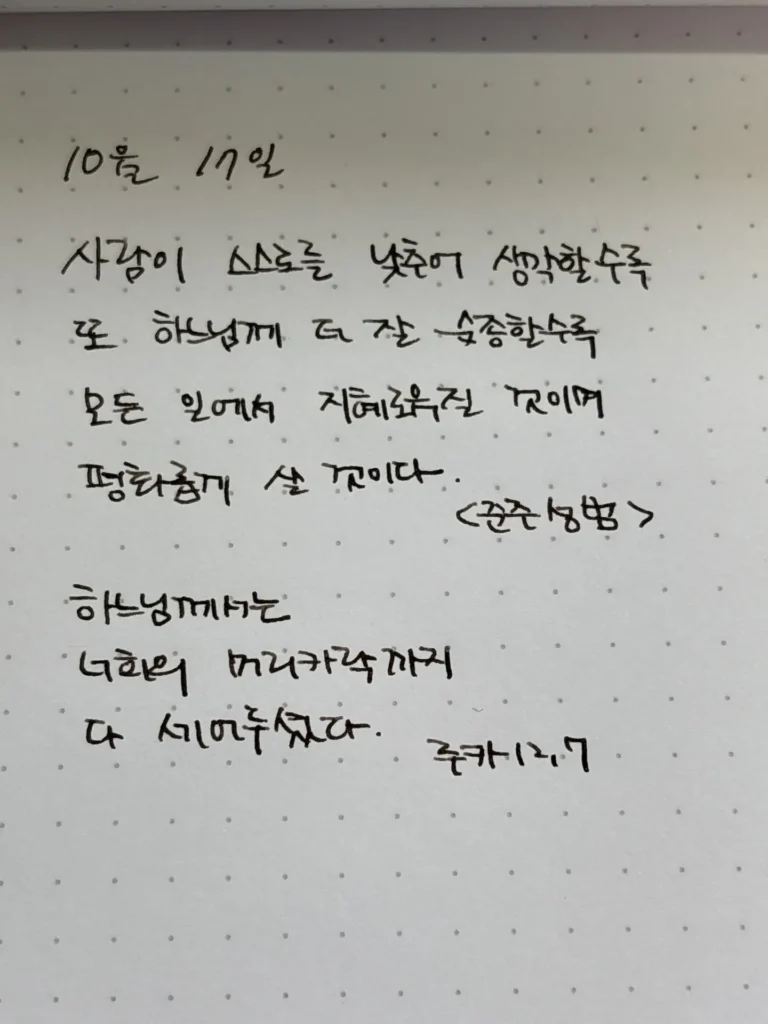 10월 17일
사람이 스스로를 낮추어 생각할수록
또 하느님께 더 잘 순종할수록
모든 일에서 지혜로워질 것이며
평화롭게 살 것이다.
<준주성범>
하느님께서는
너희의 머리카락까지
다 세어두셨다.
루카 12,7